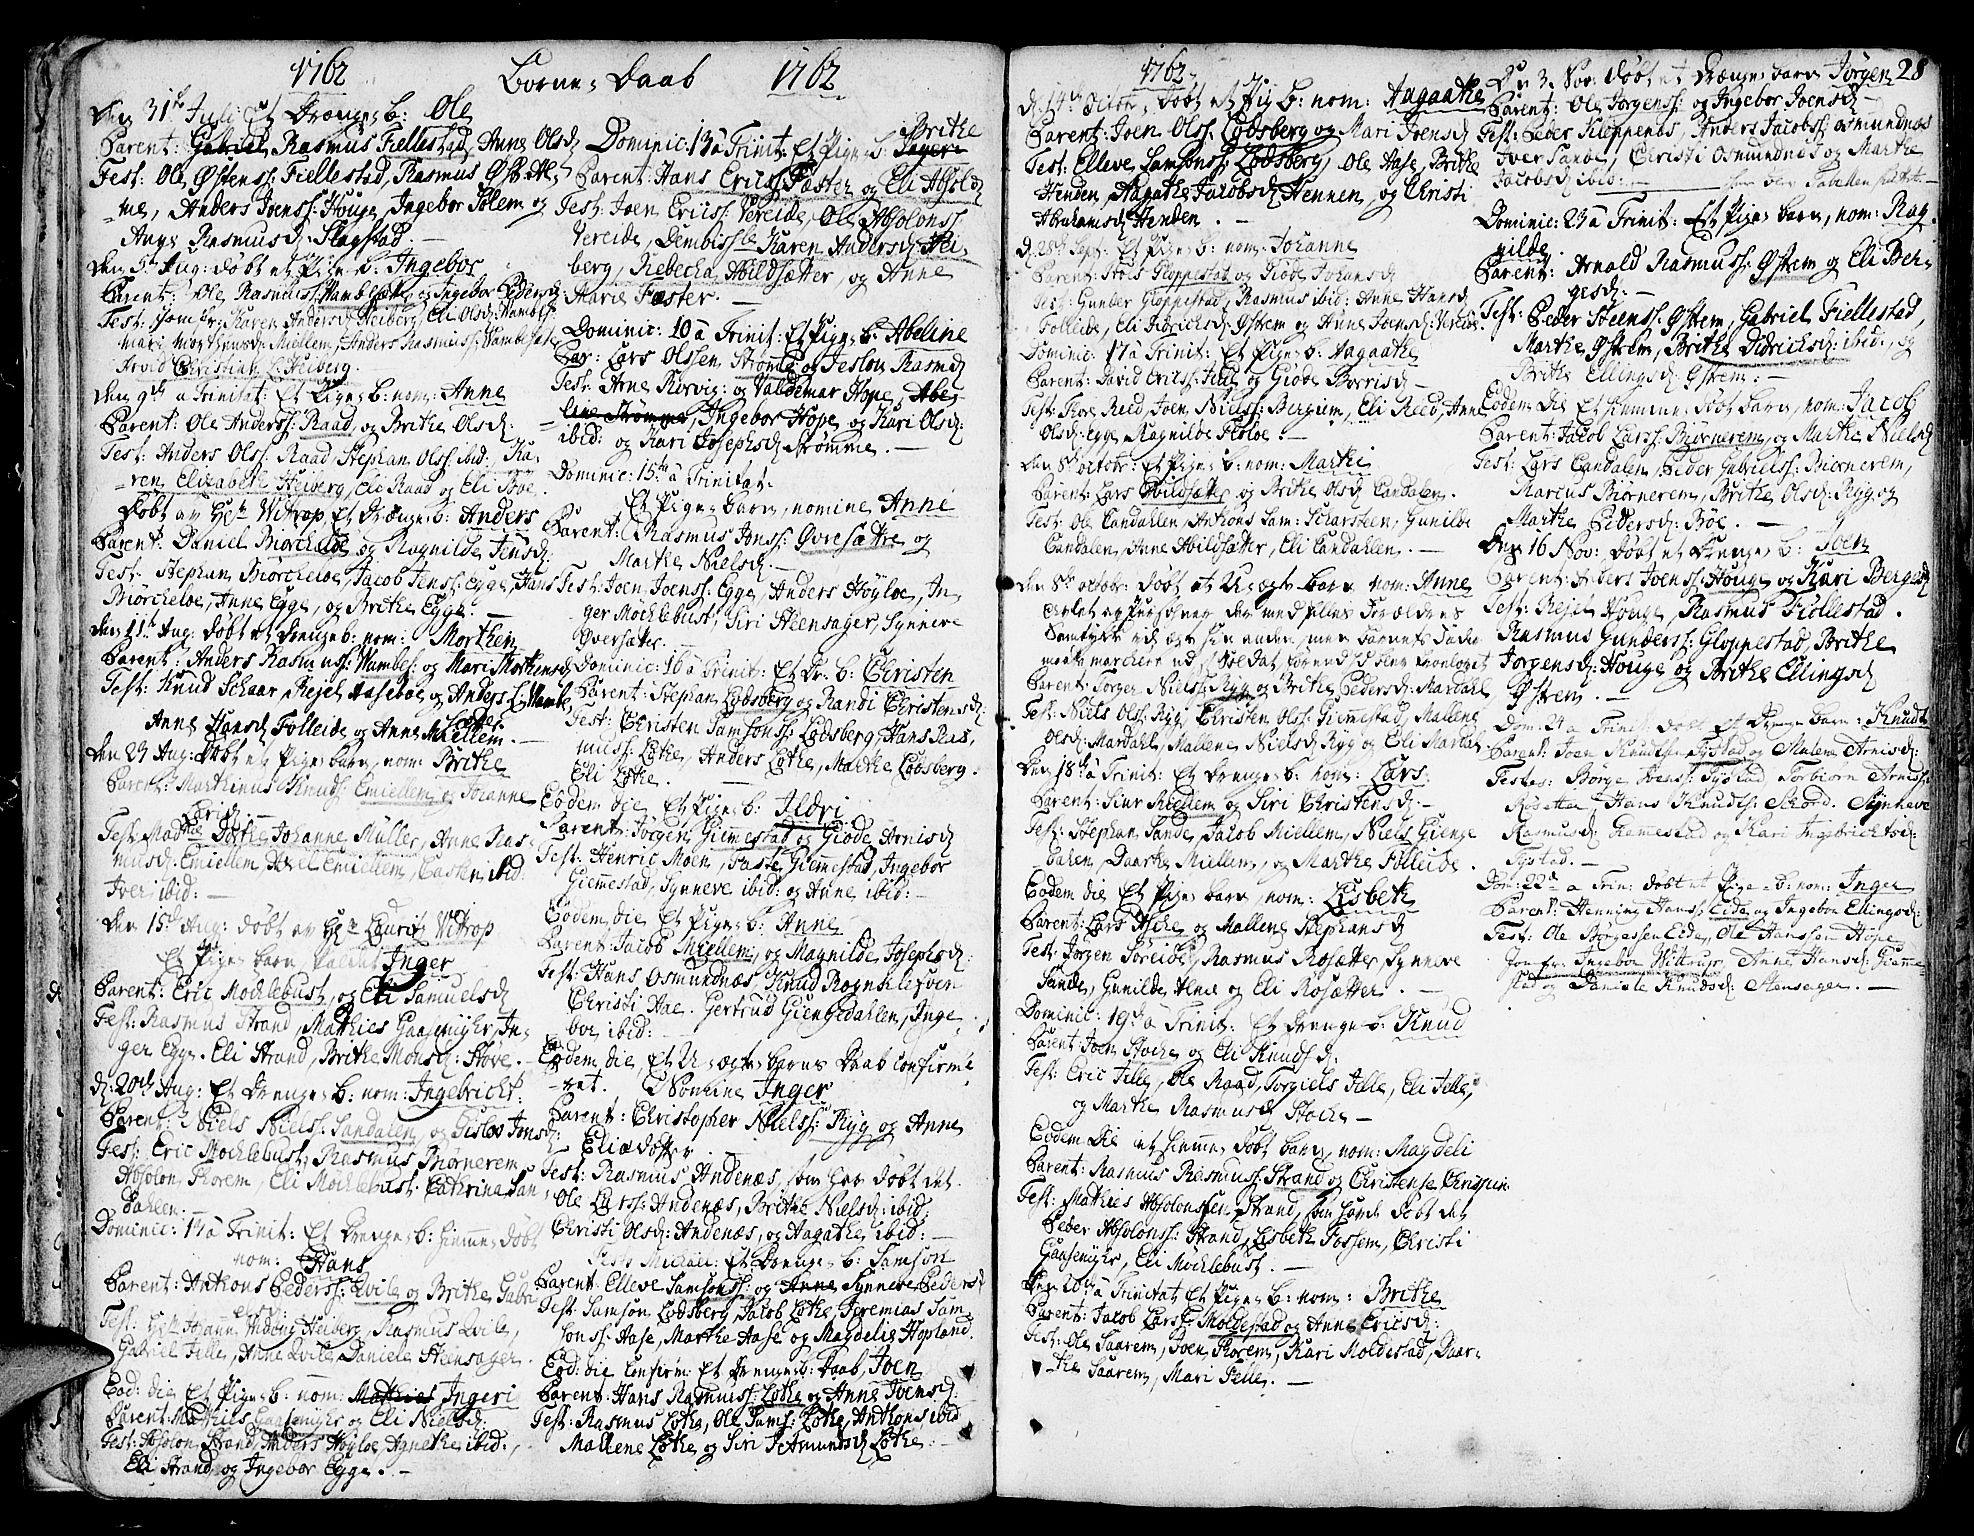 1762 Börne-Daab 1762
Den 31te Julii Et Drenge b: Ole
Parent: Rasmus Fiellestad, Anne Olsd
Test: Ole Østenss: Fiellestad, Rasmus
me, Anders Joenss: Houge, Ingebor Solem og
Ane Rasmusd: Slagstad. —
Den 5te Aug: döbt et Pige b: Ingebor
Parent: Ole Rasmuss: Wambesæter og Ingebor Pedersd:
Test: Karen Andersd: Heiberg, Eli Olsd: Wambes:
Mari Mortensd: Miellem, Anders Rasmuss: Wambesæter
Arvid Christian L: Heiberg.
Den 9de a Trinitat: Et Pige b: nom: Anne
Parent: Ole Anderss: Raad, og Brithe Olsd:
Test: Anders Olss: Raad, Stephan Olss: ibid: Ka-
ren Elizabeth Heiberg, Eli Raad og Eli Böe.
Döbt av Hr: Witrop Et Drenge b: Anders
Parent: Daniel Biörcheloe og Ragnilde Jensd:
Test: Stephan Biörcheloe, Jacob Jenss: Egge, Hans
Biörcheloe, Anne Egge, og Brithe Egge. —
Den 11te Aug: döbt et Drenge b: nom: Morthen
Parent: Anders Rasmuss: Wambes: og Mari Mortensd
Test: Knud Schaar, Rejel Aaseböe og Anders L: Wambe
sæter
Anne Hansd Folleide og Anne Miellem. —
Den 29 Aug: Döbt et Pige barn, nom: Brithe
Parent: Marthinus Knuds: Emiellem og Johanne
Larsd. —
Test: Mad: Dorthe Johanne Müller, Anne Ras-
musd: Emiellem, Axel Emiellem, Carsten ibid:
Iver ibid: —
Den 15de Aug: döbt av Hr: Lauritz Witrop
Et Pige barn, kaldet Inger
Parent: Eric Mochlebust, og Eli Samuelsd
Test: Rasmus Strand, Mathies Gaasemyhr, In-
ger Egge. Eli Strand, Brithe Monsd: Störe. —
D: 20de Aug: Et Drenge b: nom: Ingebricht.
Parent: Niels Nielss: Sandalen, og Gisloe Jonsd:
Test: Eric Mochlebust, Rasmus Biörnerem
Absolon Thorem, Eli Mochlebust, Cathrina San-
dahlen. —
Dominic: 14 a Trinit: Et Drenge b: hiemme döbt
nom: Hans
Parent: Anthons Pederss: Qvile og Brithe Gabri-
elsd:
Test: Hr: Johann Widwig Heiberg, Rasmus Qvile,
Gabriel Felle, Anne Qvile, Daniele Steensager.
Eod: die Et Pige b: nom: Ingeri
Parent: Mathies Gaasemyhr og Eli Nielsd:
Test: Absolon Strand, Anders Höyloe, Agnethe ibid:,
Eli Strand, og Ingebor Egge. —
Dominic: 13 a Trinit: Et Pige b: Brithe
Parent: Hans Ericss: Foster og Eli Absolsd
Test: Joen Ericss: Vereide, Ole Absolonss
Vereide, Karen Andersd: Hei-
berg, Riebecha Abildsætter, og Anne
Marie Foster. —
Dominic: 10 a Trinit: Et Pige b: Abeline
Par: Lars Olssen Strömme og Jeslou Rasmd
Test: Arne Korvig: og Valdemar Hope, Abe-
line Strömme, Ingebor Hope og Kari Olsd:
ibid: og Kari Josephsd: Strömme. —
Dominic: 15te a Trinitat.
Et Pige barn, nomine Anne
Parent: Rasmus Jonss: Øvresætre og
Marthe Nielsd. —
Test: Joen Joenss: Egge, Anders Höyloe, In-
ger Mochlebust, Siri Steensager, Synneve
Øversæter.
Dominic: 16 a Trinit: Et Dr: b: Christen
Parent: Stephan Lodsberg og Randi Christensd:
Test: Christen Samsonss: Lodsberg, Hans Ras-
muss: Lothe, Anders Lothe, Marthe Lodsberg.
Eli Lothe. —
Eodem die Et Pige b: Ildri.
Parent: Jörgen Giemestad og Giöde Arnisd
Test: Henric Moen, Faste Giemestad, Ingebor
Giemestad, Synneve ibid: og Anne ibid: —
Eodem die Et Pige b: Anne
Parent: Jacob Miellem, og Magnilde Josephsd:
Test: Hans Osmundnæs, Knud Rognklefven
Christi Aae. Gertrud Giengedahlen, Inge-
bor ibid:
Eodem die, Et Uægte barns Daab confirme-
ret. Nomine Inger
Parent: Christopher Nielss: Ryg og Anne
Eliædotter. —
Test: Rasmus Andenæs, som har döbt det.
Ole Larss: Andenæs, Brithe Nielsd: ibid:
Christi Olsd: Andenæs, og Aagathe ibid: —
Festo Michael: Et Drenge b: Samson
Parent: Elleve Samsonss: og Anne Synneve Pedersd
Test: Samson Lodsberg, Jacob Lothe, Jeremias Sam-
sonss: Aase, Marthe Aase og Magdelis Hopland.
Eod: die confirm: Et Drenge b: Daab, Joen
Parent: Hans Rasmuss: Lothe og Anne Joensd:
Test: Rasmus Lothe, Ole Sams: Lothe, Anthons ibid
Mallene Lothe og Siri Amundsd Lothe. —
1762
D: 14de Octobr: döbt et Pige b: nom: Aagaathe
Parent: Joen Olss: Lodsberg og Mari Joensd
Test: Elleve Samsonss: Lodsberg, Ole Aase, Brithe
Henden, Aagathe Jacobsd: Hennen, og Christi
Abrahamsd: Henden. —
D: 28de Sept: Et Pige b: nom: Johanne
Parent: Gloppestad og Giöde Johansd
Test: Gunder Gloppestad, Rasmus ibid: Anne Hansd
Folleide, Eli Didrichsd: Østrem og Anne Joensd: Vereide
Dominic: 17 a Trinit: Et Pige b: Aagaathe
Parent: David Ericss: Felle og Giöde Borrisd —
Test: Thore Reed, Joen Nielss: Bergiem, Eli Reed, Anne
Olsd: Egge, Ragnilde Floloe. —
Den 8de Octobr: Et Pige b: nom: Marthe
Parent: Lars Abildsætter og Brithe Olsd Sandalen.
Test: Ole Sandahlen, Anthons Lam: Scharsteen, Gunilde
Sandalen, Anne Abildsætter, Eli Sandahlen. —
Den 8de October: döbt et Uægte barn, nom: Anne
Samtyche vil ægte hin anden, men Barnets Fader
maatte marchere ud, Soldat
Parent: Torger Nielss: Ryg og Brithe Pedersd: Mardahl
Test: Niels Olss: Ryg, Christen Olss: Giemestad, Mallene
Olsd: Mardahl, Mallene Nielsd: Ryg og Eli Mardal
Den 18de a Trinit: Et Drenge b: nom: Lars.
Parent: Siur Miellem og Siri Christensd. —
Test: Stephan Sande, Jacob Miellem, Niels Gienge
dalen, Daarthe Miellem, og Marthe Folleide.
Eodem die Et Pige barn, nom: Lisbeth
Parent: Lars Aske og Mallene Stephansd
Test: Jörgen Soreide, Rasmus Rosætter, Synneve
Sande, Gunilde Alme og Eli Rosætter. —
Dominic: 19de a Trinit: Et Drenge b: Knud
Parent: Joen Stoche og Eli Knudsd.
Test: Eric Felle, Ole Raad, Torgiels Felle, Eli Felle,
og Marthe Rasmusd Stoche —
Eodem Die et hiemme döbt barn, nom: Magdeli
Parent: Rasmus Rasmuss: Strand og Christense Chrispin
Test: Mathies Absolonssen Strand, som havde döbt det
Peder Absolonss: Strand, Lisbeth Fossem, Christi
Gaasemyhr, Eli Mochlebust. —
Den 20de a Trinitat Et Pige b: nom: Brithe
Parent: Jacob Larss: Moldestad og Anne Ericsd:
Test: Ole Saarem, Joen Thorem, Kari Moldestad, Daar-
the Saarem, Mari Felle. —
28
Den 3 Nov: Döbt et Drenge barn Jörgen
Parent: Ole Jorgenss: og Ingebor Joensd —
Test: Peder Kleppenæs, Anders Jacobss: Osmundnæs
Iver Sande, Christi Osmundnæs og Marthe
Jacobsd ibid: —
Dominic: 23 a Trinit: Et Pige barn, nom: Rag-
nilde
Parent: Arnold Rasmuss: Østrem og Eli Bør-
gesd: —
Test: Peder Steenss: Østrem, Gabriel Fiellestad,
Marthe Østrem, Brithe Didrichsd: ibid:, og
Brithe Ellingsd: Østrem. —
Eodem Die Et hiemme döbt barn, nom: Jacob
Parent: Jacob Larss: Biörnerem, og Marthe Nielsd
Test: Lars Sandalen, Peder Gabrielss: Biörnerem,
Marcus Biörnerem, Brithe Olsd: Ryg og
Marthe Pedersd: Böe. —
Den 16 Nov: döbt et Drenge b: Joen
Parent: Anders Joenss: Houge og Kari Bergesd
Test: Rejel Houge, Rasmus Fiellestad.
Rasmus Gunderss: Gloppestad, Brithe
Jorgensd: Houge og Brithe Ellingsd
Østrem. —
Dom: 24 a Trinit: döbt et Drenge barn: Knudt
Parent: Joen Knudtss: Tystad og Malene Arnisd:
Testes: Börge Joenss: Tystad, Torbiorn Arniss:
Rosetter, Hans Knudts: Skord. Synneve
Rasmusd: Giemestad og Kari Ingebrichtsd:
Tystad. —
Dom: 22de a Trin: döbt et Pige b: nom: Inger
Parent: Henning Hanss: Eide og Ingebor Ellingsd:
Test: Ole Börgessen Eide, Ole Hanssen Hope
Jomfr: Ingebor Wittrup, Anne Hansd: Gieme-
stad og Daniele Knudsd: Stensager. —